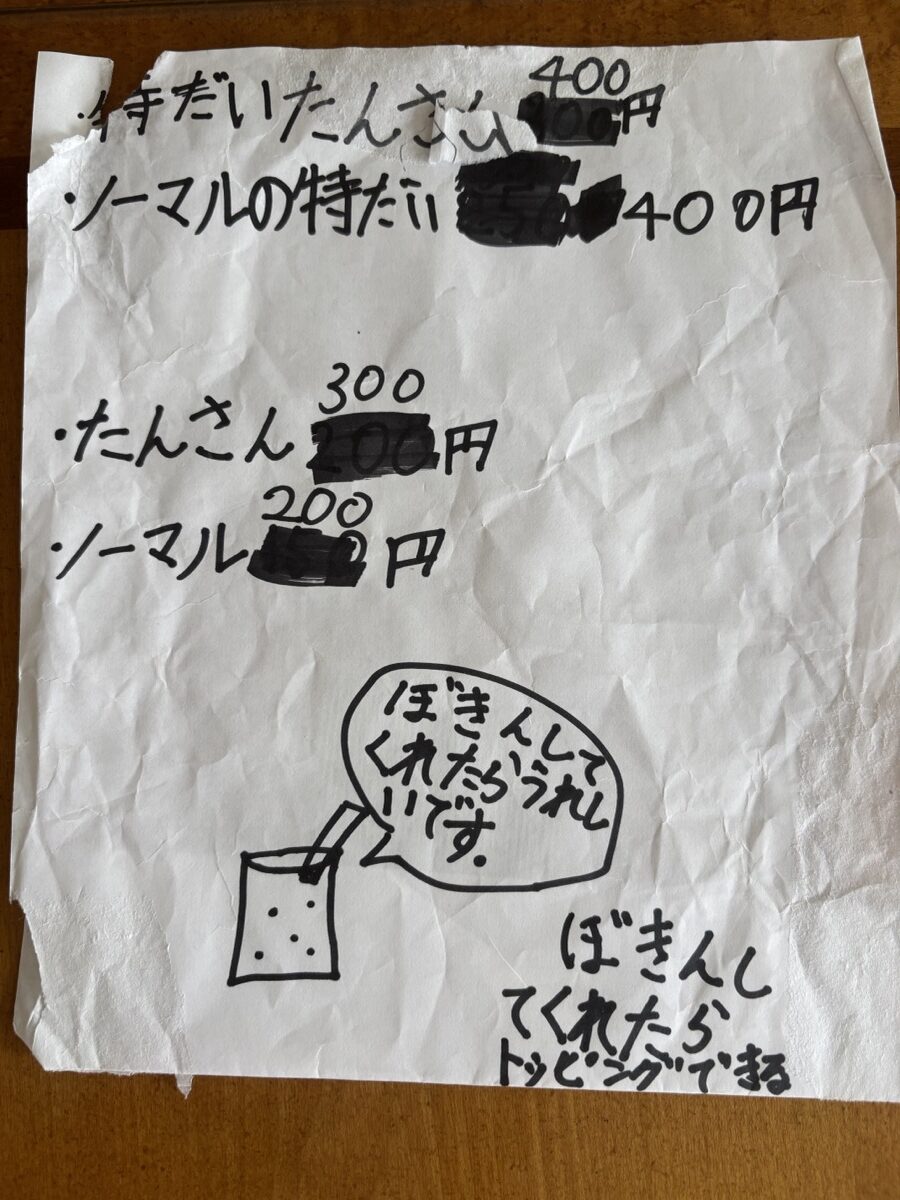 ・特だいたんさん 400円
・ノーマルの特だい 400円
・たんさん 300円
・ノーマル 200円
ぼきんして
くれたらうれし
いです.
ぼきんし
てくれたら
トッピングできる